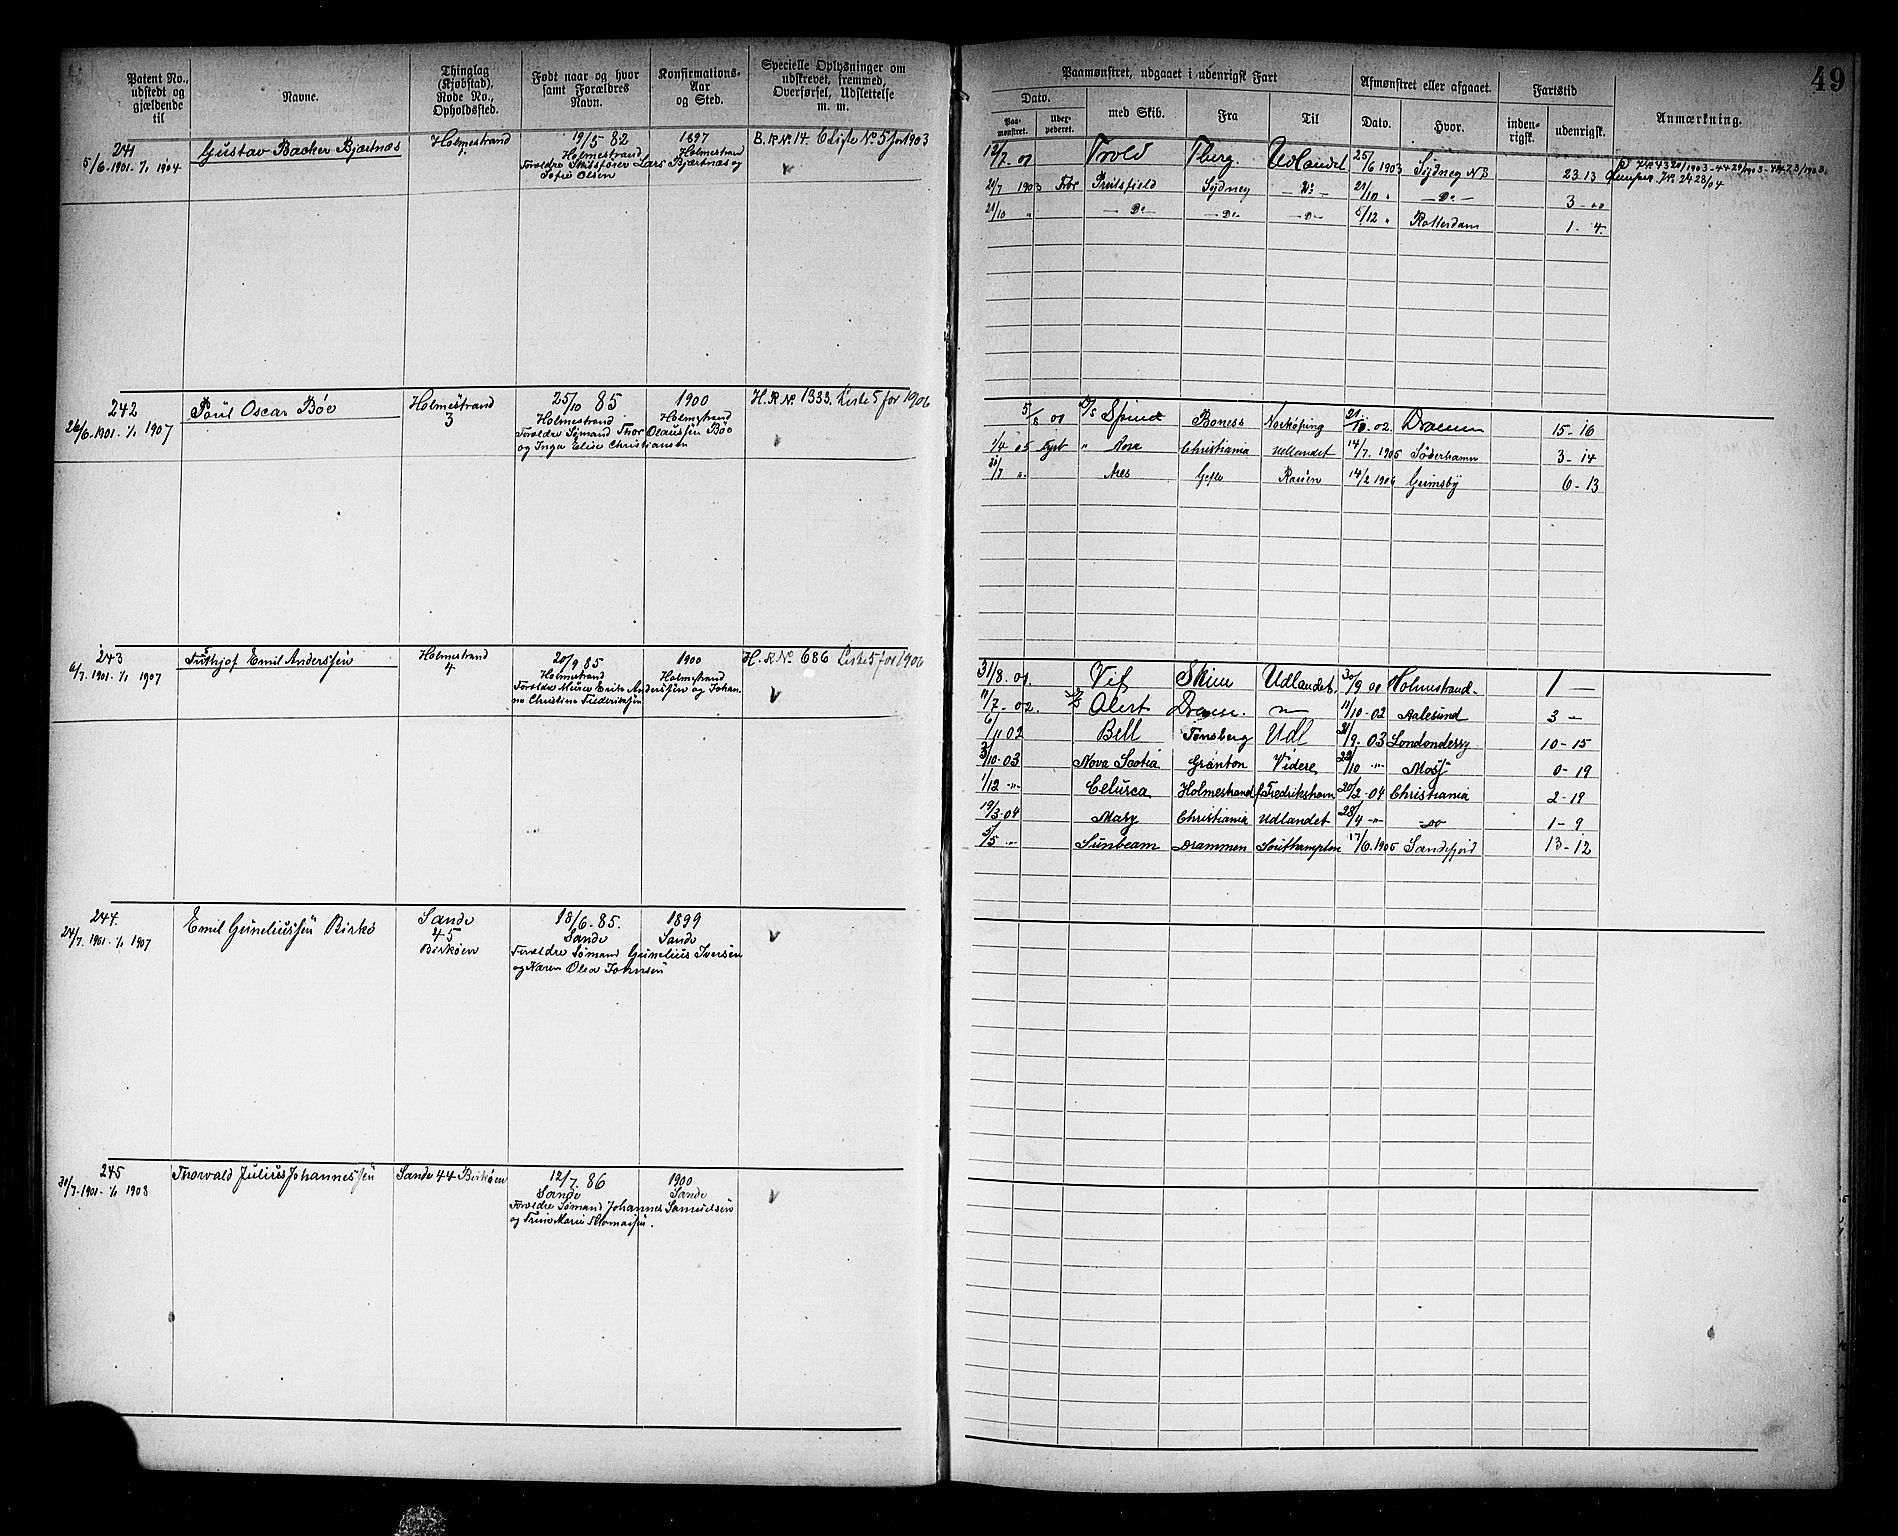 49
Patent No., udstedt og gjældende til
Navne.
Thinglag (Kjøbstad), Rode No., Opholdssted.
Født naar og hvor samt Forældres Navn.
Konfirmations-Aar og Sted.
Specielle Oplysninger om udskrevet, fremmed, Overførsel, Udslettelse m. m.
Paamønstret, udgaaet i udenrigsk Fart
Afmønstret eller afgaaet.
Fartstid
Anmærkning.
Dato.
Paa-mønstret.
med Skib.
Fra
Til
Dato.
Hvor.
inden-rigsk.
udenrigsk.
241
5/6-1901-1/1 1904
Gustav Backer Bjærtnæs
Holmestrand
1
19/5 82
Holmestrand
Forældre Skibsfører Lars Bjærtnæs og
Sofie Olsen
1897
Holmestrand
B.R.No. 14. Cliste No. 5 for 1903
12/7-01 Trold Tberg. Udlandet 25/6 1903 Sydney 23 13
21/7 1903 Sydney - Do - 21/10 " - Do -
3 - 00
21/10 " - Do - - Do - - Do - 5/12 " Rotterdam 1 - 4
242
26/6-1901-1/1 1907
Paul Oscar Bøe
Holmestrand
3
25/10 85
Holmestrand
Forældre Sømand Thor Olaussen Bøe
og Inga Elise Christiansen
1900
Holmestrand
H.R.No. 1333. Liste 5 for 1906
5/8 01 D/S Spind Boness Norkøping 21/10-02 Drammen 15-16
1/4 05 " Christiania Udlandet 14/7 1905 Søderhamn 3-14
Gefle Rouen 14/2 1906 Grimsby 6-13
243
6/7-1901-1/1 1907
Frithjof Emil Anderssen
Holmestrand
4
20/9 85
Holmestrand
Forældre Murer Anderssen og Johan
ne Christine Frederiksen
1900
Holmestrand
H.R.No. 686 Liste 5 for 1906
31/8-01 Vif Skien Udlandet. 30/9 01 Holmestrand. 1 -
11/7-02. Alert 11/10-02 Aalesund 3 -
6/11 02 Bell Tønsberg Udl 21/9-03 Londonderry 10-15
3/10-03 Nova Scotia Granton Videre /10 -"- Moss 0-19
1/12 -"- Celurca Holmestrand Fredrikshavn 20/2-04 Christiania 2-19
19/3-04 Mary Christiania Udlandet 28/4 -"- 1-9
5/5 -"- Sunbeam Drammen Southampton 17/6 1905 Sandefjord 13-12
244.
24/7-1901-1/1 1907
Emil Guneliussen Birkø
Sande
45
Birkøen
18/6-85.
Sande
Forældre Sømand Gunelius Iversen
og Karen Olea Johnsen
1899
Sande
245
30/7-1901-1/1 1908
Thorvald Julius Johannessen
Sande 44 Birkøen
12/7. 86
Sande
Forældre Sømand Johannes Samuelsen
og Trine Marie Thomassen.
1900
Sande